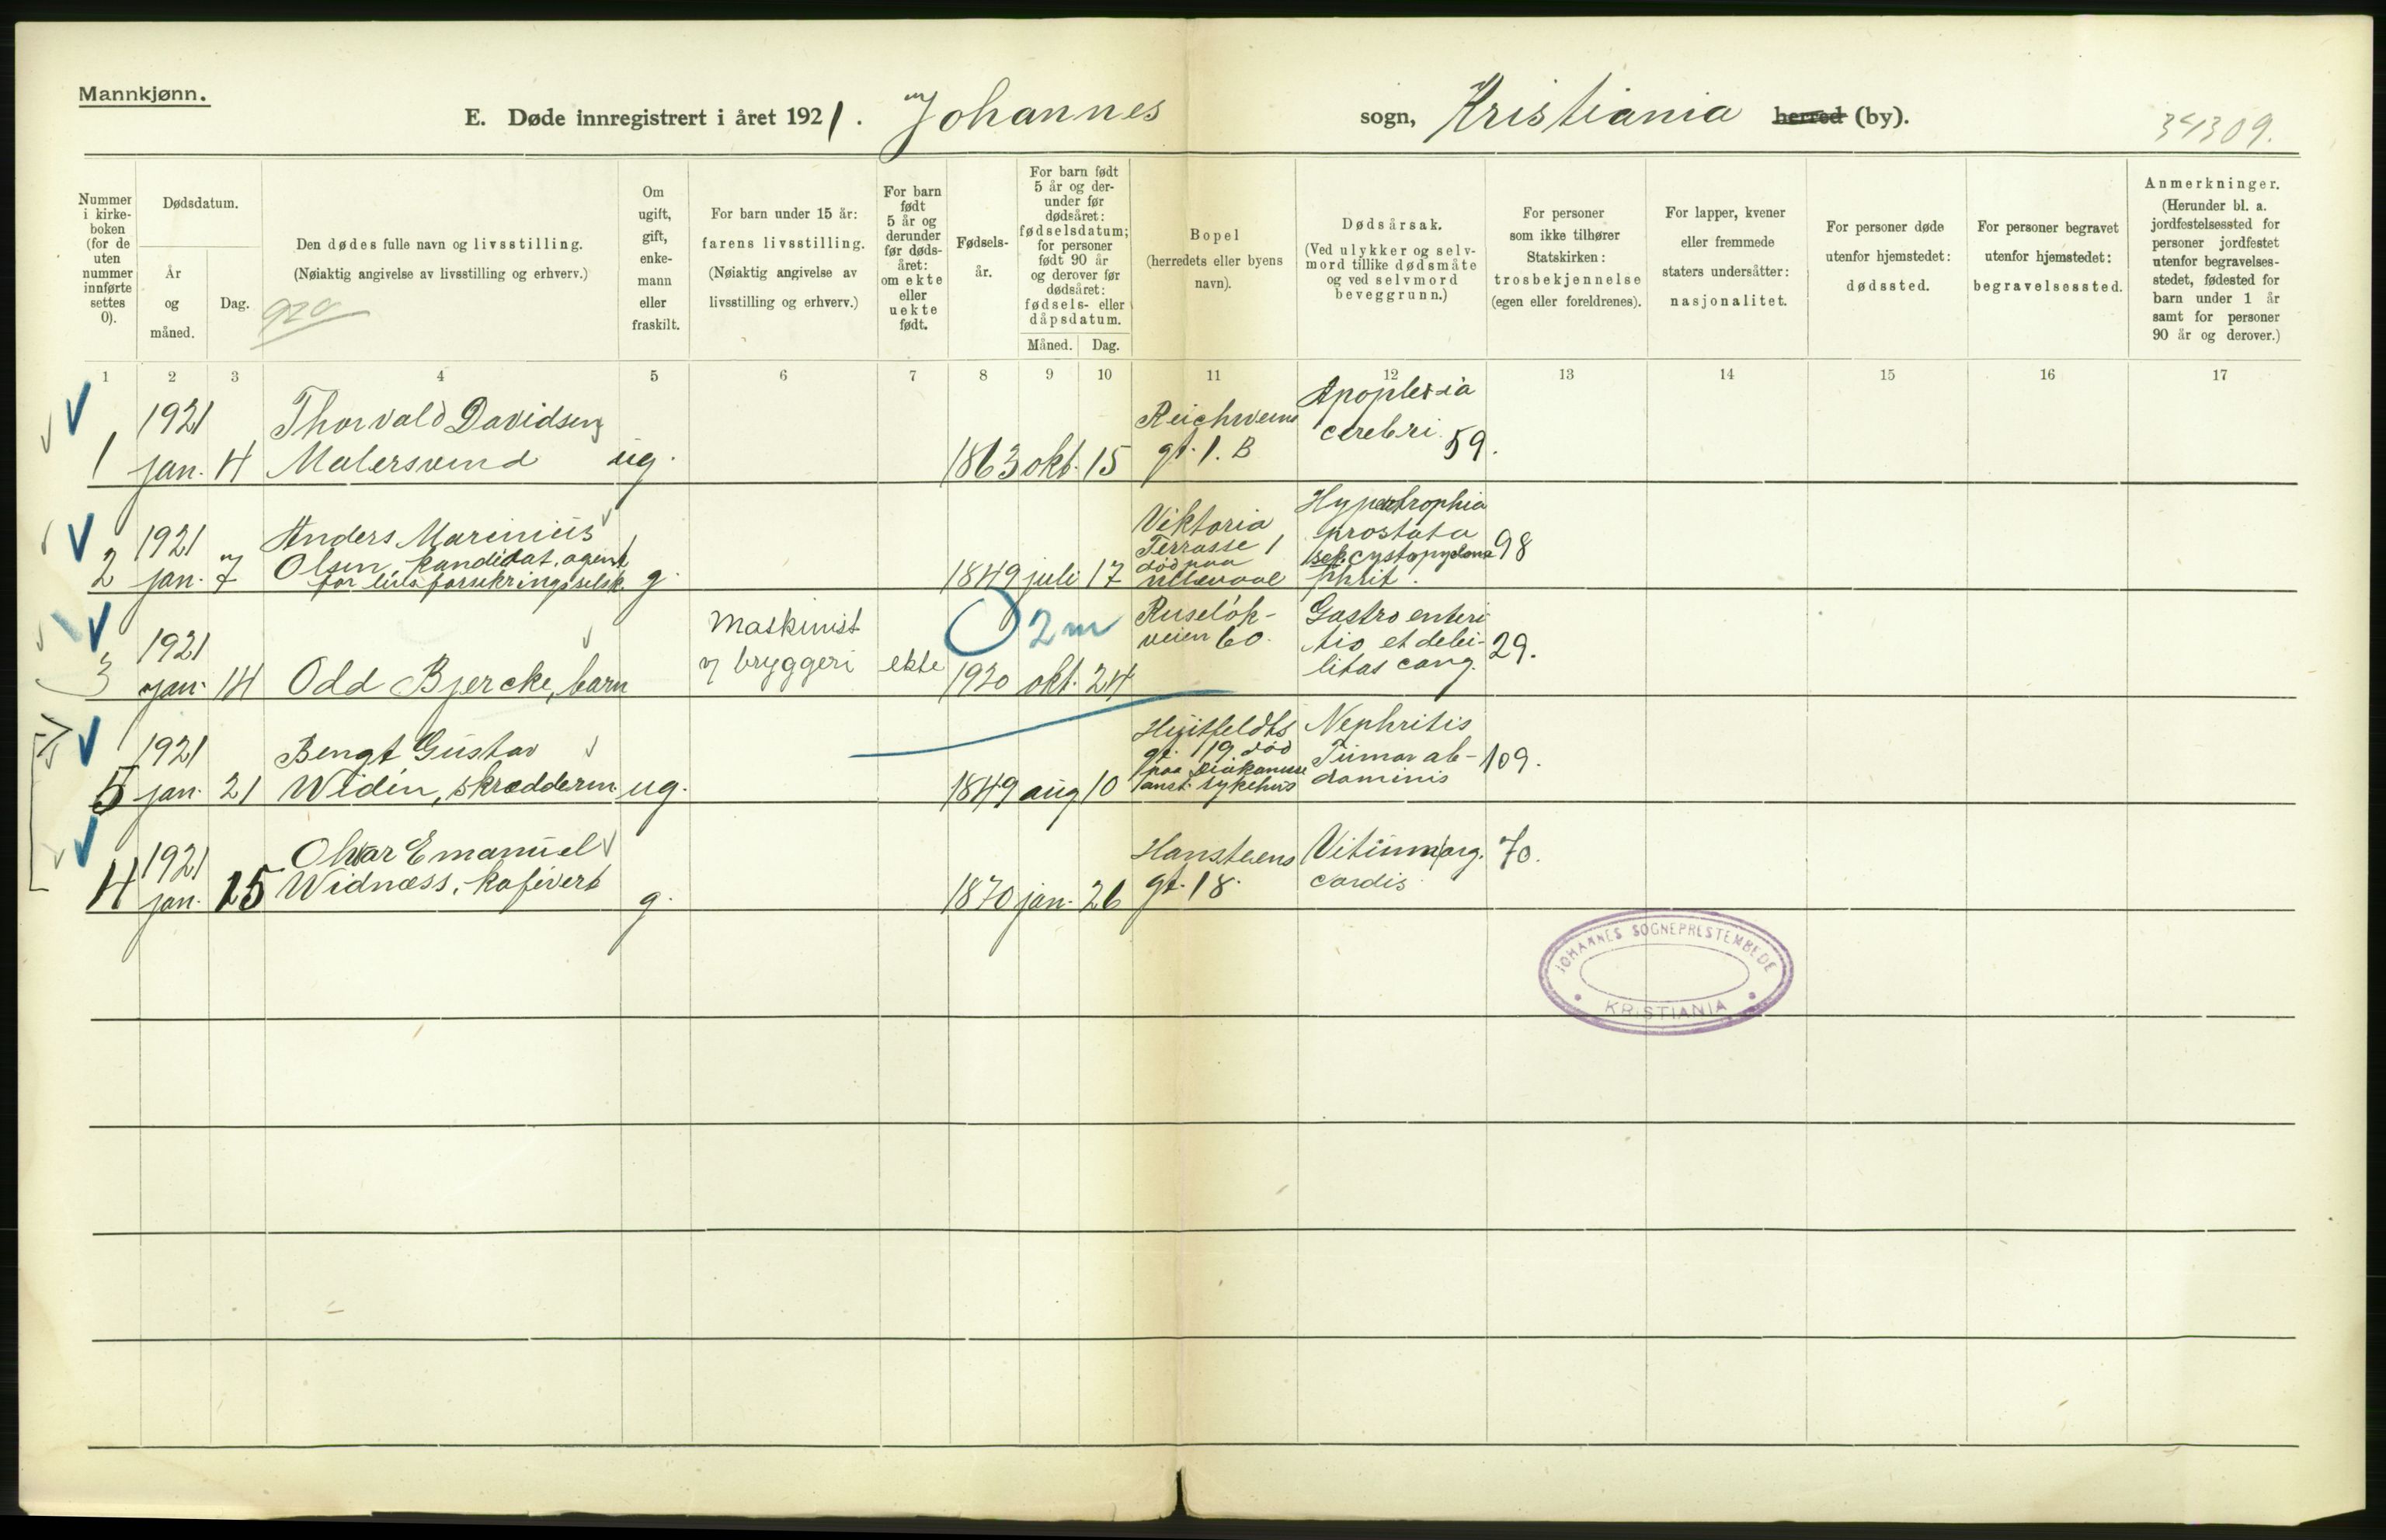 Mannkjønn.
E. Døde innregistrert i året 1921. Johannes sogn, Kristiania herred (by).
34309.
Nummer i kirkeboken (for de uten nummer innførte settes 0).
Dødsdatum.
År og måned.
Dag.
Den dødes fulle navn og livsstilling.
(Nøiaktig angivelse av livsstilling og erhverv.)
920
Om ugift, gift, enkemann eller fraskilt.
For barn under 15 år: farens livsstilling.
(Nøiaktig angivelse av livsstilling og erhverv.)
For barn født 5 år og derunder før dødsåret: om ekte eller uekte født.
Fødselsår.
For barn født 5 år og derunder før dødsåret: fødselsdatum; for personer født 90 år og derover før dødsåret: fødsels- eller dåpsdatum.
Måned.
Dag.
Bopel
(herredets eller byens navn).
Dødsårsak.
(Ved ulykker og selvmord tillike dødsmåte og ved selvmord beveggrunn.)
For personer som ikke tilhører Statskirken: trosbekjennelse (egen eller foreldrenes).
For lapper, kvener eller fremmede staters undersåtter: nasjonalitet.
For personer døde utenfor hjemstedet: dødssted.
For personer begravet utenfor hjemstedet: begravelsessted.
Anmerkninger.
(Herunder bl. a. jordfestelsessted for personer jordfestet utenfor begravelsesstedet, fødested for barn under 1 år samt for personer 90 år og derover.)
1 2 3 4 5 6 7 8 9 10 11 12 13 14 15 16 17
1921 Thorvald Davidsen Reichweins Apoplexia
1 jan. 4 Malersvend ug. 1863 okt. 15 gt. 1. B cerebri. 59.
1921 Anders Marinius Viktoria Hypertrophia
2 jan. 7 Olsen, kandidat, agent Terrasse 1 prostata
for livsforsikringsselsk. g. 1849 juli 17 død paa Ullevaal sek. 98
phrit.
2 m
1921 Maskinist Ruseløk- Gastro enteri
3 jan. 14 Odd Bjercke, barn v bryggeri ekte 1920 okt. 24 veien 60. tio et debi-
litas cong. 29.
1921 Bengt Gustav Huitfeldts Nephritis
5 jan. 21 Widén, skrædderm. ug. 1849 aug 10 gt. 19 død Tumor ab- 109.
paa Diakonisse dominis
anst. sykehus
1921 Olvar Emanuel Hansteens Vitium org. 70.
4 jan. 15 Widnæss, kafévert g. 1870 jan. 26 gt. 18. cordis
JOHANNES SOGNEPRESTEMBEDE
KRISTIANIA